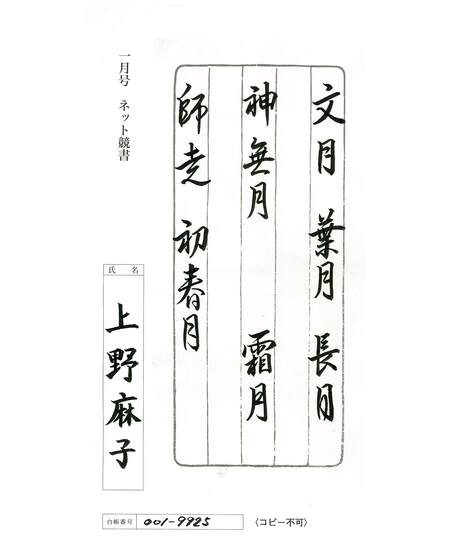 文月 葉月 長月
神無月 霜月
師走 初春月
一月号 ネット競書
氏名
上野麻子
台帳番号 001-9925 〈コピー不可〉